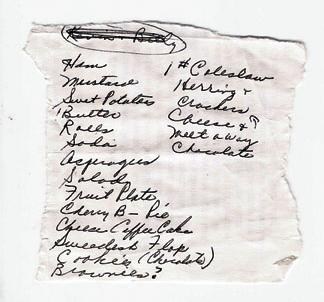 Ham
Mustard
Sweet Potatoes
Butter
Rolls
Soda
Asparagus
Salad
Fruit Plate
Cherry B - Pie
Cheese Coffee Cake
Sweedish Flop
Cookies (Chocolate)
Brownies?
1# Coleslaw
Herring +
Crackers
Cheese &
Meltaway
Chocolate